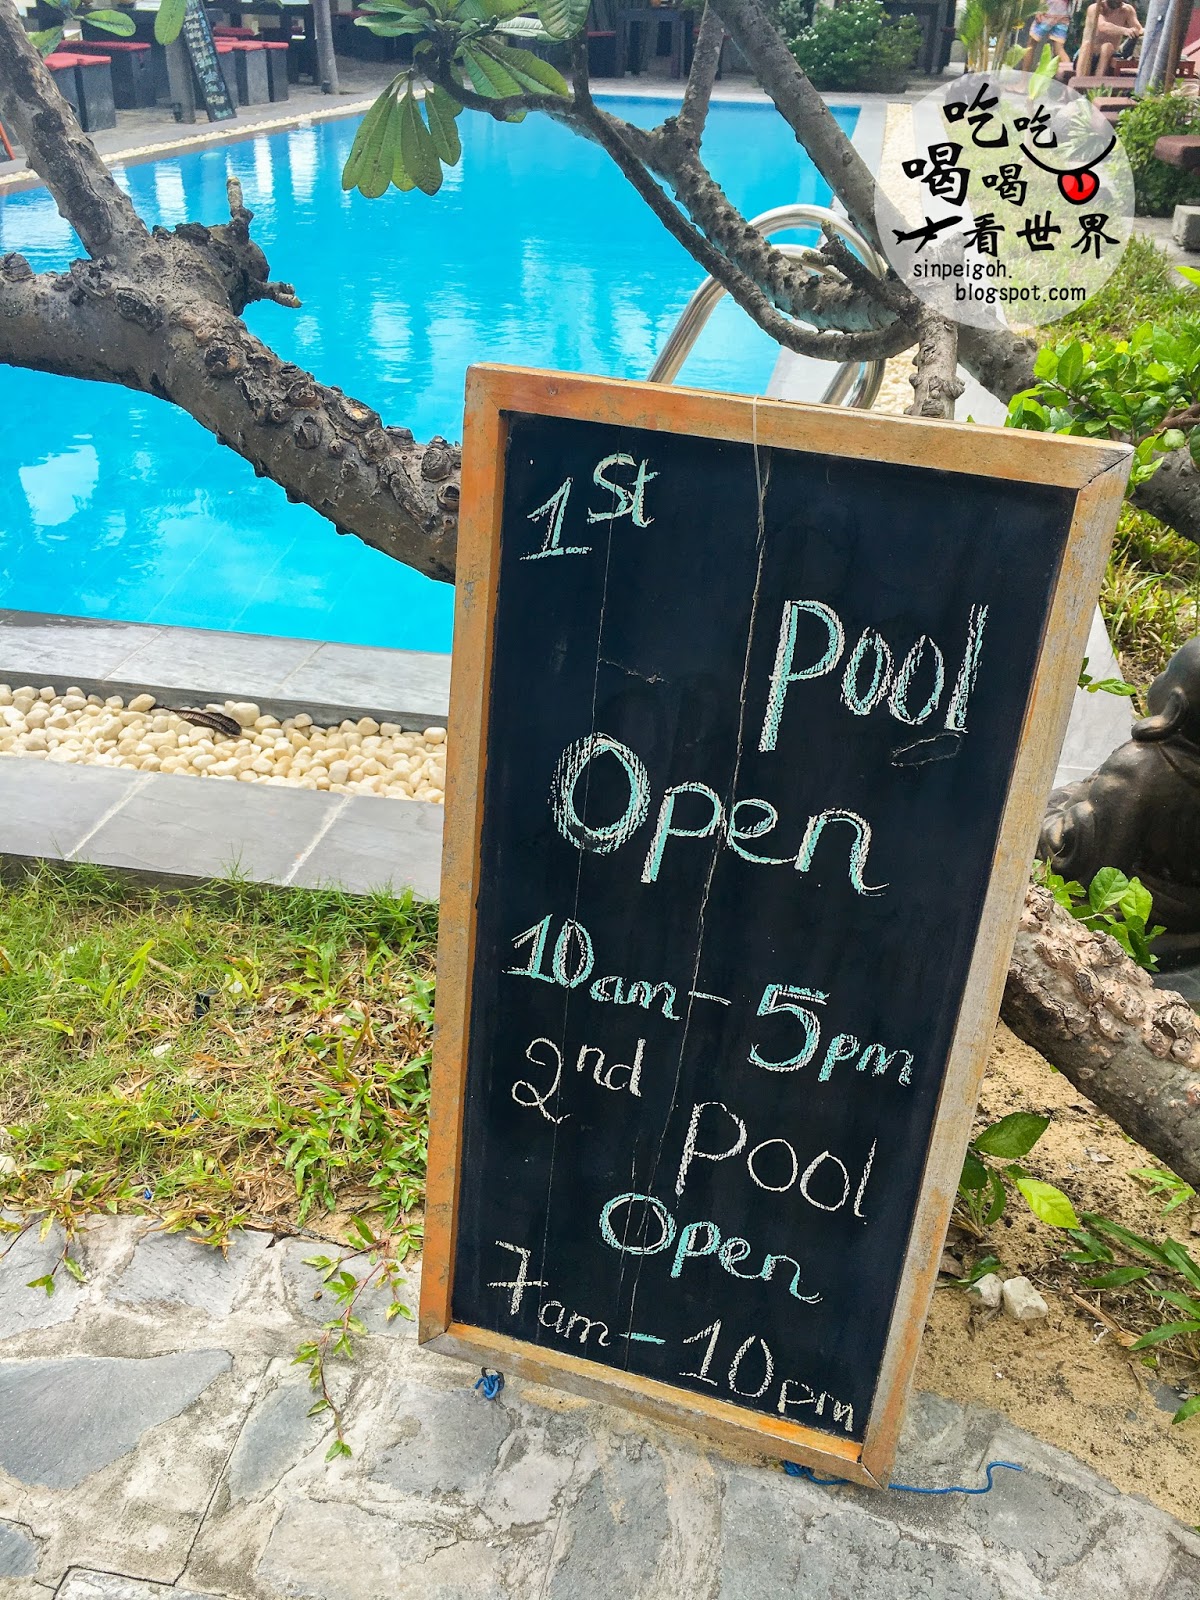 吃吃
喝喝
看世界
sinpeigoh.
blogspot.com
1st
Pool
Open
10am - 5pm
2nd
Pool
Open
7am - 10pm